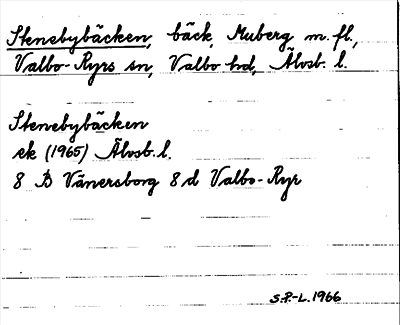 Stenebybäcken, bäck, Muberg m. fl.,
Valbo-Ryrs sn, Valbo hd, Älvsb. l.
Stenebybäcken
ek (1965) Älvsb. l.
8 B Vänersborg 8 d Valbo-Ryr
S.P.-L. 1966